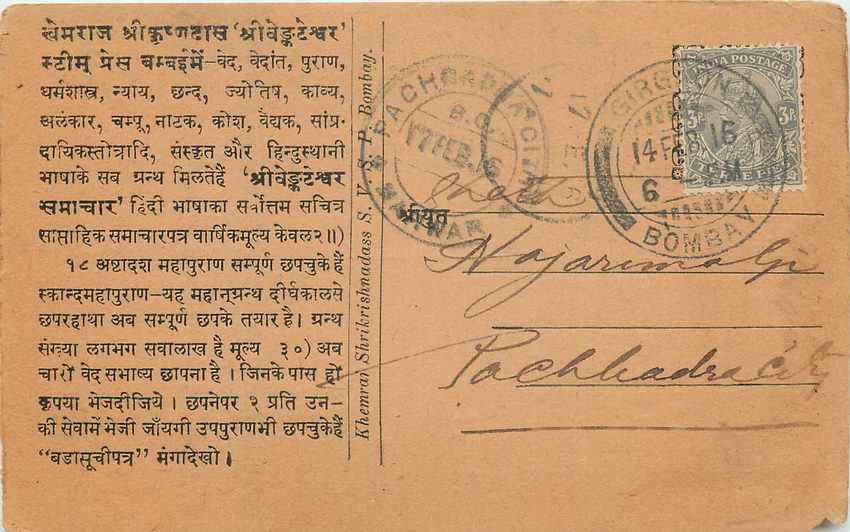 खेमराज श्रीकृष्णदास 'श्रीवेङ्कटेश्वर'
स्टीम् प्रेस बम्बईमें-वेद, वेदांत, पुराण,
धर्मशास्त्र, न्याय, छन्द, ज्योतिष, काव्य,
अलंकार, चम्पू, नाटक, कोश, वैद्यक, सांप्र-
दायिकस्तोत्रादि, संस्कृत और हिन्दुस्थानी
भाषाके सब ग्रन्थ मिलतेहैं 'श्रीवेङ्कटेश्वर
समाचार' हिंदी भाषाका सर्वोत्तम सचित्र
साप्ताहिक समाचारपत्र वार्षिकमूल्य केवल२॥)
१८ अष्टादश महापुराण सम्पूर्ण छपचुके हैं
स्कान्दमहापुराण-यह महान्ग्रन्थ दीर्घकालसे
छपरहाथा अब सम्पूर्ण छपके तयार है। ग्रन्थ
संख्या लगभग सवालाख है मूल्य ३०) अब
चारों वेद सभाष्य छापना है। जिनके पास हो
कृपया भेजदीजिये। छपनेपर २ प्रति उन-
की सेवामें भेजी जाँयगी उपपुराणभी छपचुकेहैं
"बडासूचीपत्र" मंगादेखो।
Khemraj Shrikrishnadass S. V. S. P. Bombay.
PACHBADRA
B.O.
17 FEB. 16
MARWAR
GIRGAON
14 FEB. 16
6
BOMBAY
INDIA POSTAGE
3P 3P
श्रीयुत
Sheth
Hajarimalji
Pachbadra City